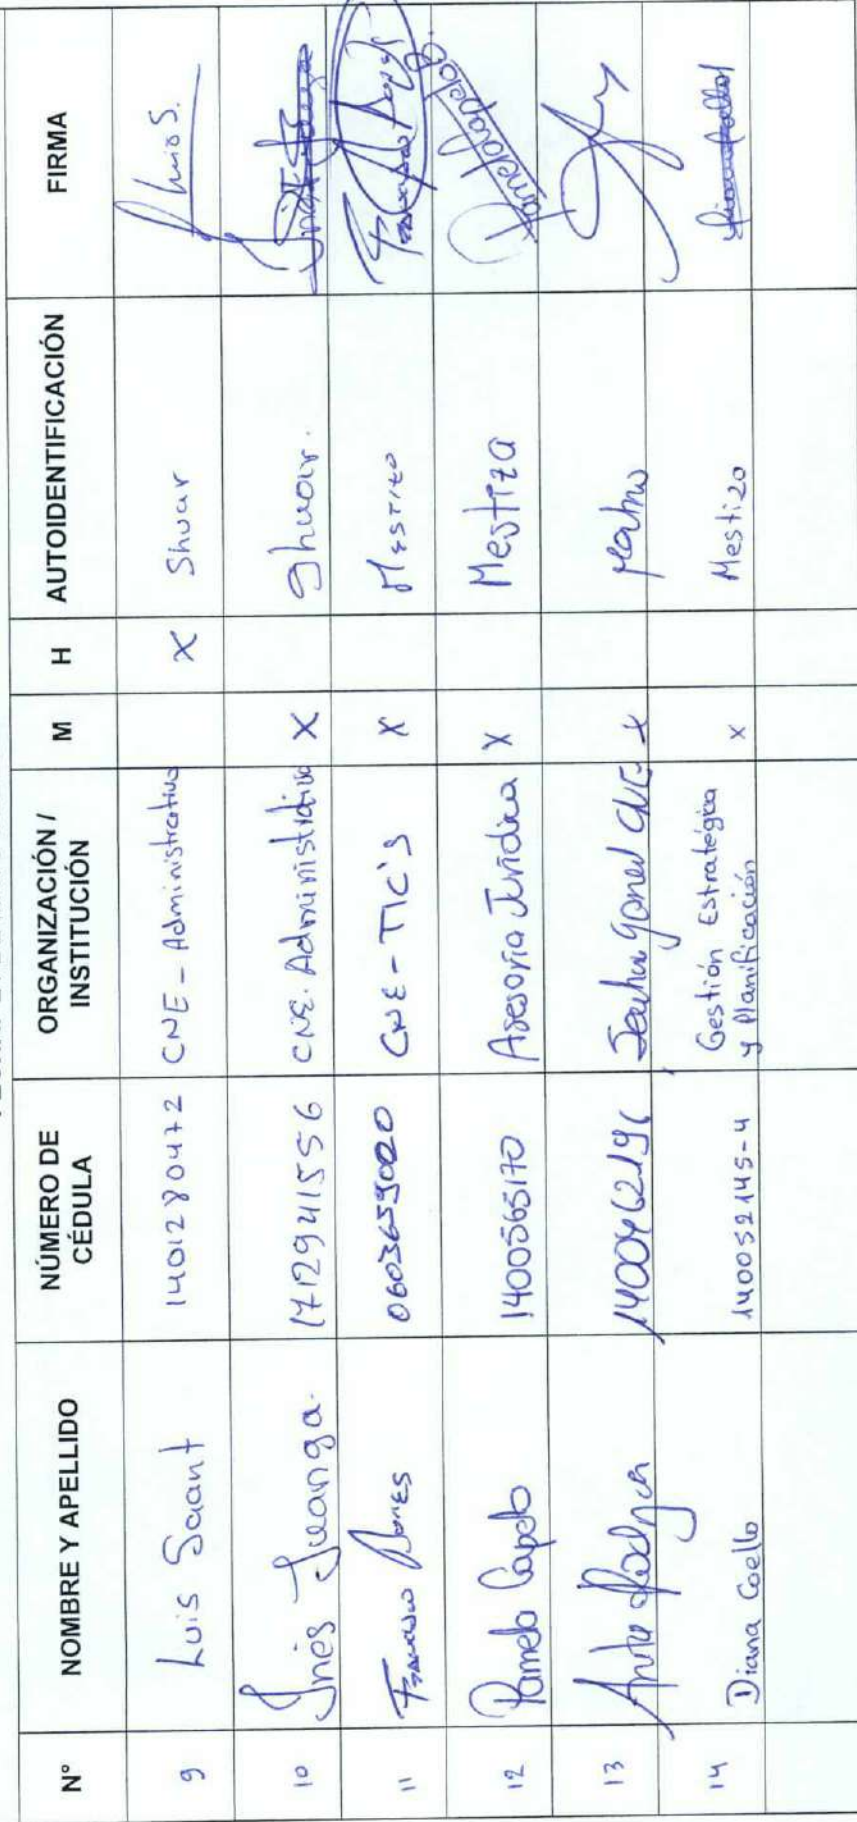 N° NOMBRE Y APELLIDO NÚMERO DE CÉDULA ORGANIZACIÓN / INSTITUCIÓN M H AUTOIDENTIFICACIÓN FIRMA
9 Luis Saant 1401280472 CNE - Administrativo X Shuar Luis S.
10 Inés Juanga. 1712941556 CNE. Administrativo X Shuar.
11 0603659020 CNE - TIC's X Mestizo
12 Pamela Capelo 1400565170 Asesoría Jurídica X Mestiza
13 CNE X
14 Diana Coello 140052145-4 Gestión Estratégica y Planificación X Mestizo